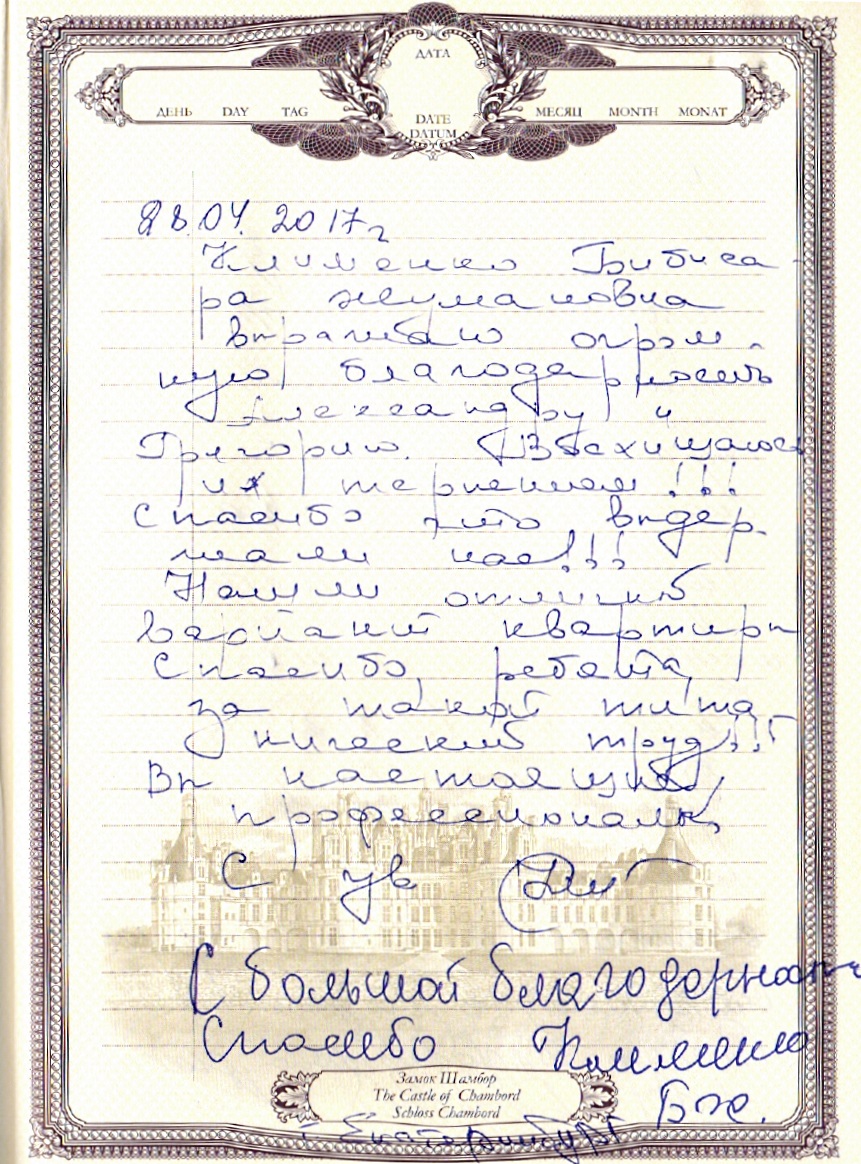 ДАТА
ДЕНЬ DAY TAG
МЕСЯЦ MONTH MONAT
DATE
DATUM
28.04.2017г
Клименко Бибиса-
ра Жумановна
выражаю огром-
ную благодарность
Александру и
Григорию. Восхищаюсь
их терпением!!!
Спасибо что выдер-
жали нас!!!
Нашли отличный
вариант квартиры
Спасибо, ребята,
за такой тита
нический труд!!!
Вы настоящие
профессионалы,
С ув
С большой благодарностью
Спасибо Клименко
Б.Ж.
Замок Шамбор
The Castle of Chambord
Schloss Chambord
г. Екатеринбург